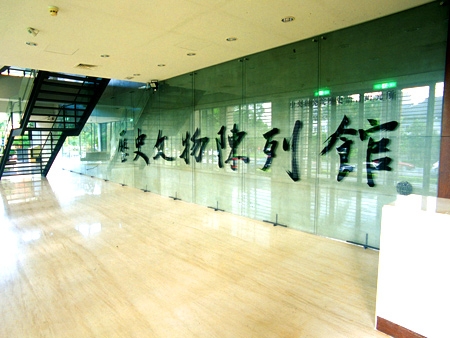 歷史文物陳列館